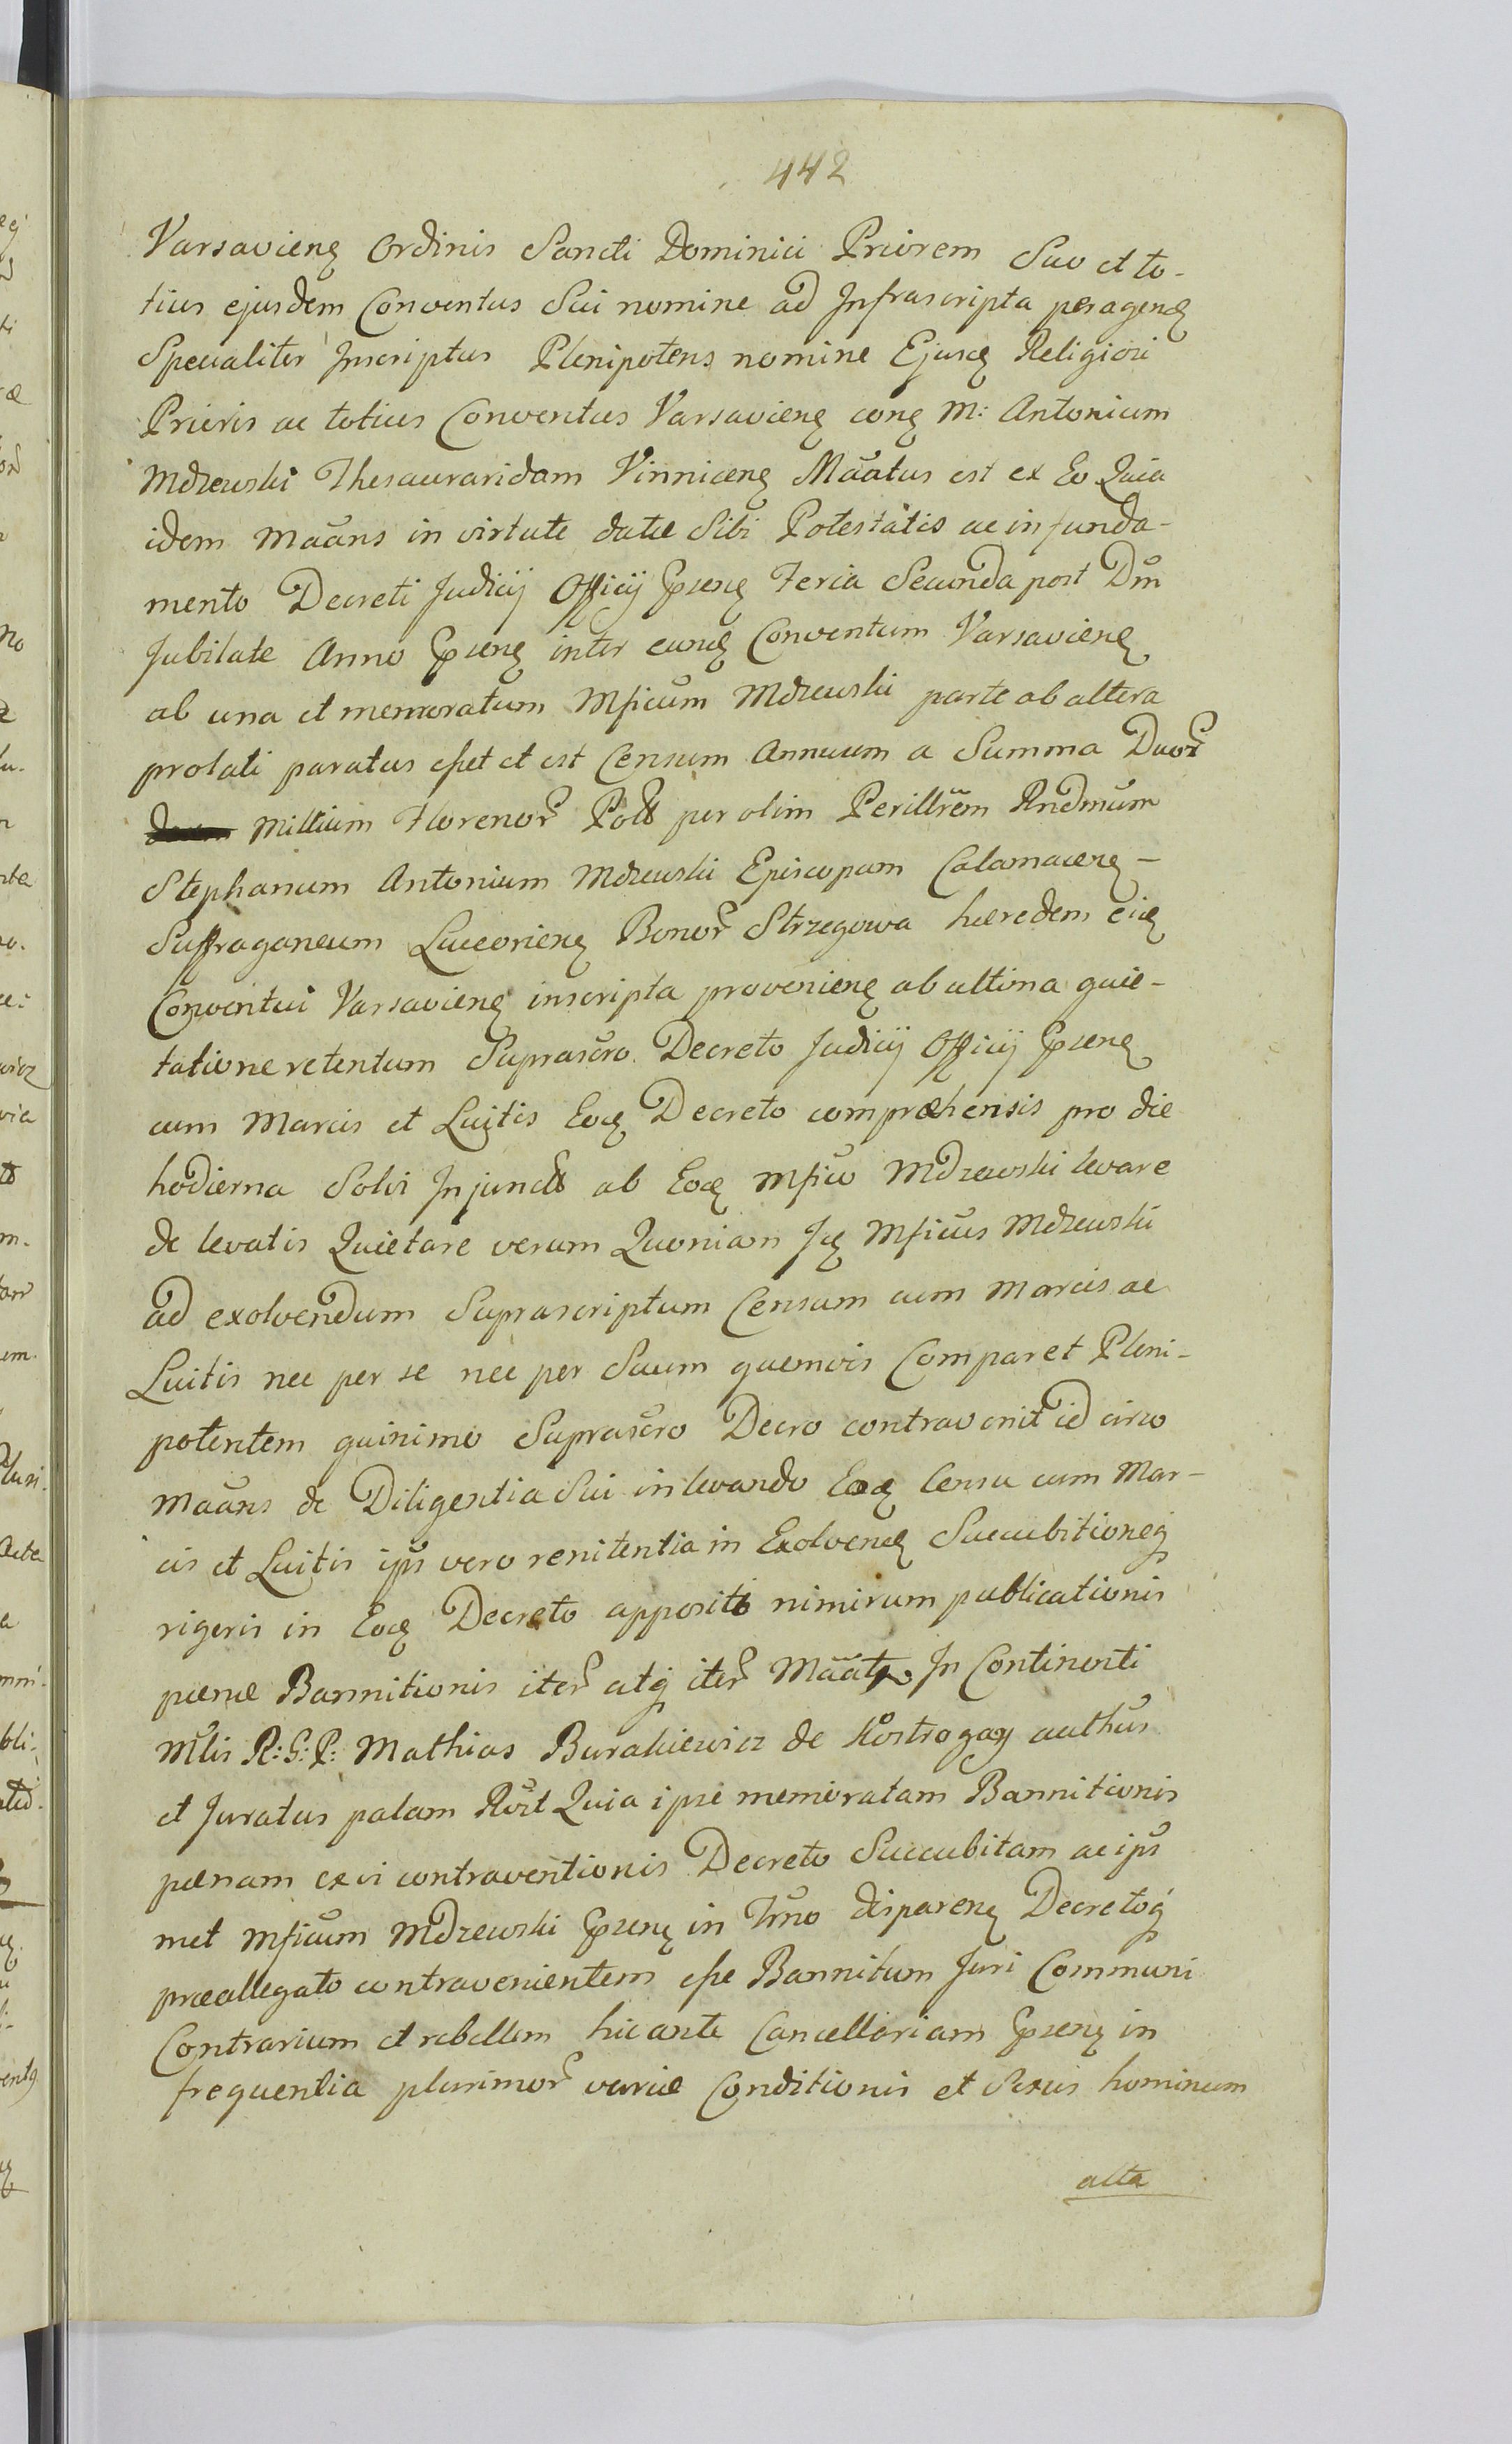 442
Varsavieng Ordinis Sancti Dominici Priorem Suo et to-
tius ejusdem Conventus Sui nomine ad Infrascripta peragend
Specialiter Inscriptus Plenipotens nomine Ejusd Religiosi
Prioris ac totius Conventus Varsavieng cong M: Antonium
Mdzewski Thesauraridam Vinniceng Maatus est ex Eo Quia
idem Maans in virtute datæ Sibi Potestatis ac in funda-
mento Decreti Judicij Officij Pseng Feria Secunda post Dm
Jubilate Anno Pseng inter eund Conventum Varsavieng
ab una et memoratum Mficum Mdzewski parte ab altera
prolati paratus esset et est Censum Annuum a Summa Duor
Millium Florenor Poll per olim Perillrem Rndmum
Stephanum Antonium Mdzewski Episcopum Calamaceng -
Suffraganeum Luceorieng Bonor Strzegowa hæredem eid
Conventui Varsavieng inscripta provenieng ab ultima quie-
tatione retentum Suprascro Decreto Judicij Officij Pseng
cum Marcis et Luitis Eod Decreto compræhensis pro die
hodierna Solvi Injunctt ab Eod Mfico Mdzewski levare
de levatis Quietare verum Quoniam Id Mficus Mdzewski
ad exolvendum Suprascriptum Censum cum Marcis ac
Luitis nec per se nec per Suum quemvis Comparet Pleni-
potentem quinimo Suprascro Decro contravenit id circo
Maans de Diligentia Sui in levando Eod Censu cum Mar-
cis et Luitis ips vero renitentia in Exolvend Succubitioneq
rigoris in Eod Decreto appositi nimirum publicationis
pœnæ Bannitionis iter atq iter Maat In Continenti
Mlis R: G: P: Mathias Burakiewicz de Kostrogay authus
et Juratus palam Rvit Quia ipse memoratam Bannitionis
pœnam ex vi contraventionis Decreto Succubitam ac ips
met Mficum Mdzewski Pseng in Trno dispareng Decretoq
præallegato contravenientem esse Bannitum Juri Communi
Contrarium et rebellem hic ante Cancellariam Pseng in
frequentia plurimor variæ Conditionis et Sexus hominum
alta